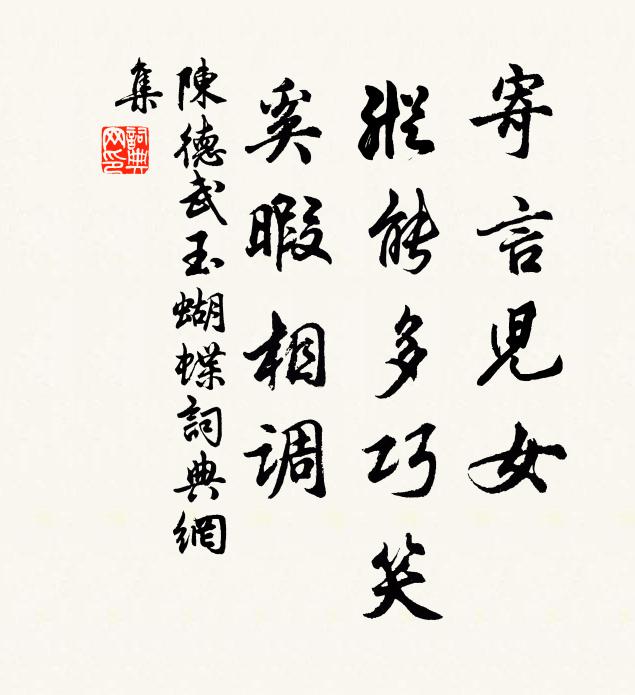 寄言児女
縱能多巧笑
奚暇相調
陳德武玉蝴蝶詞典網
集
詞典
网印